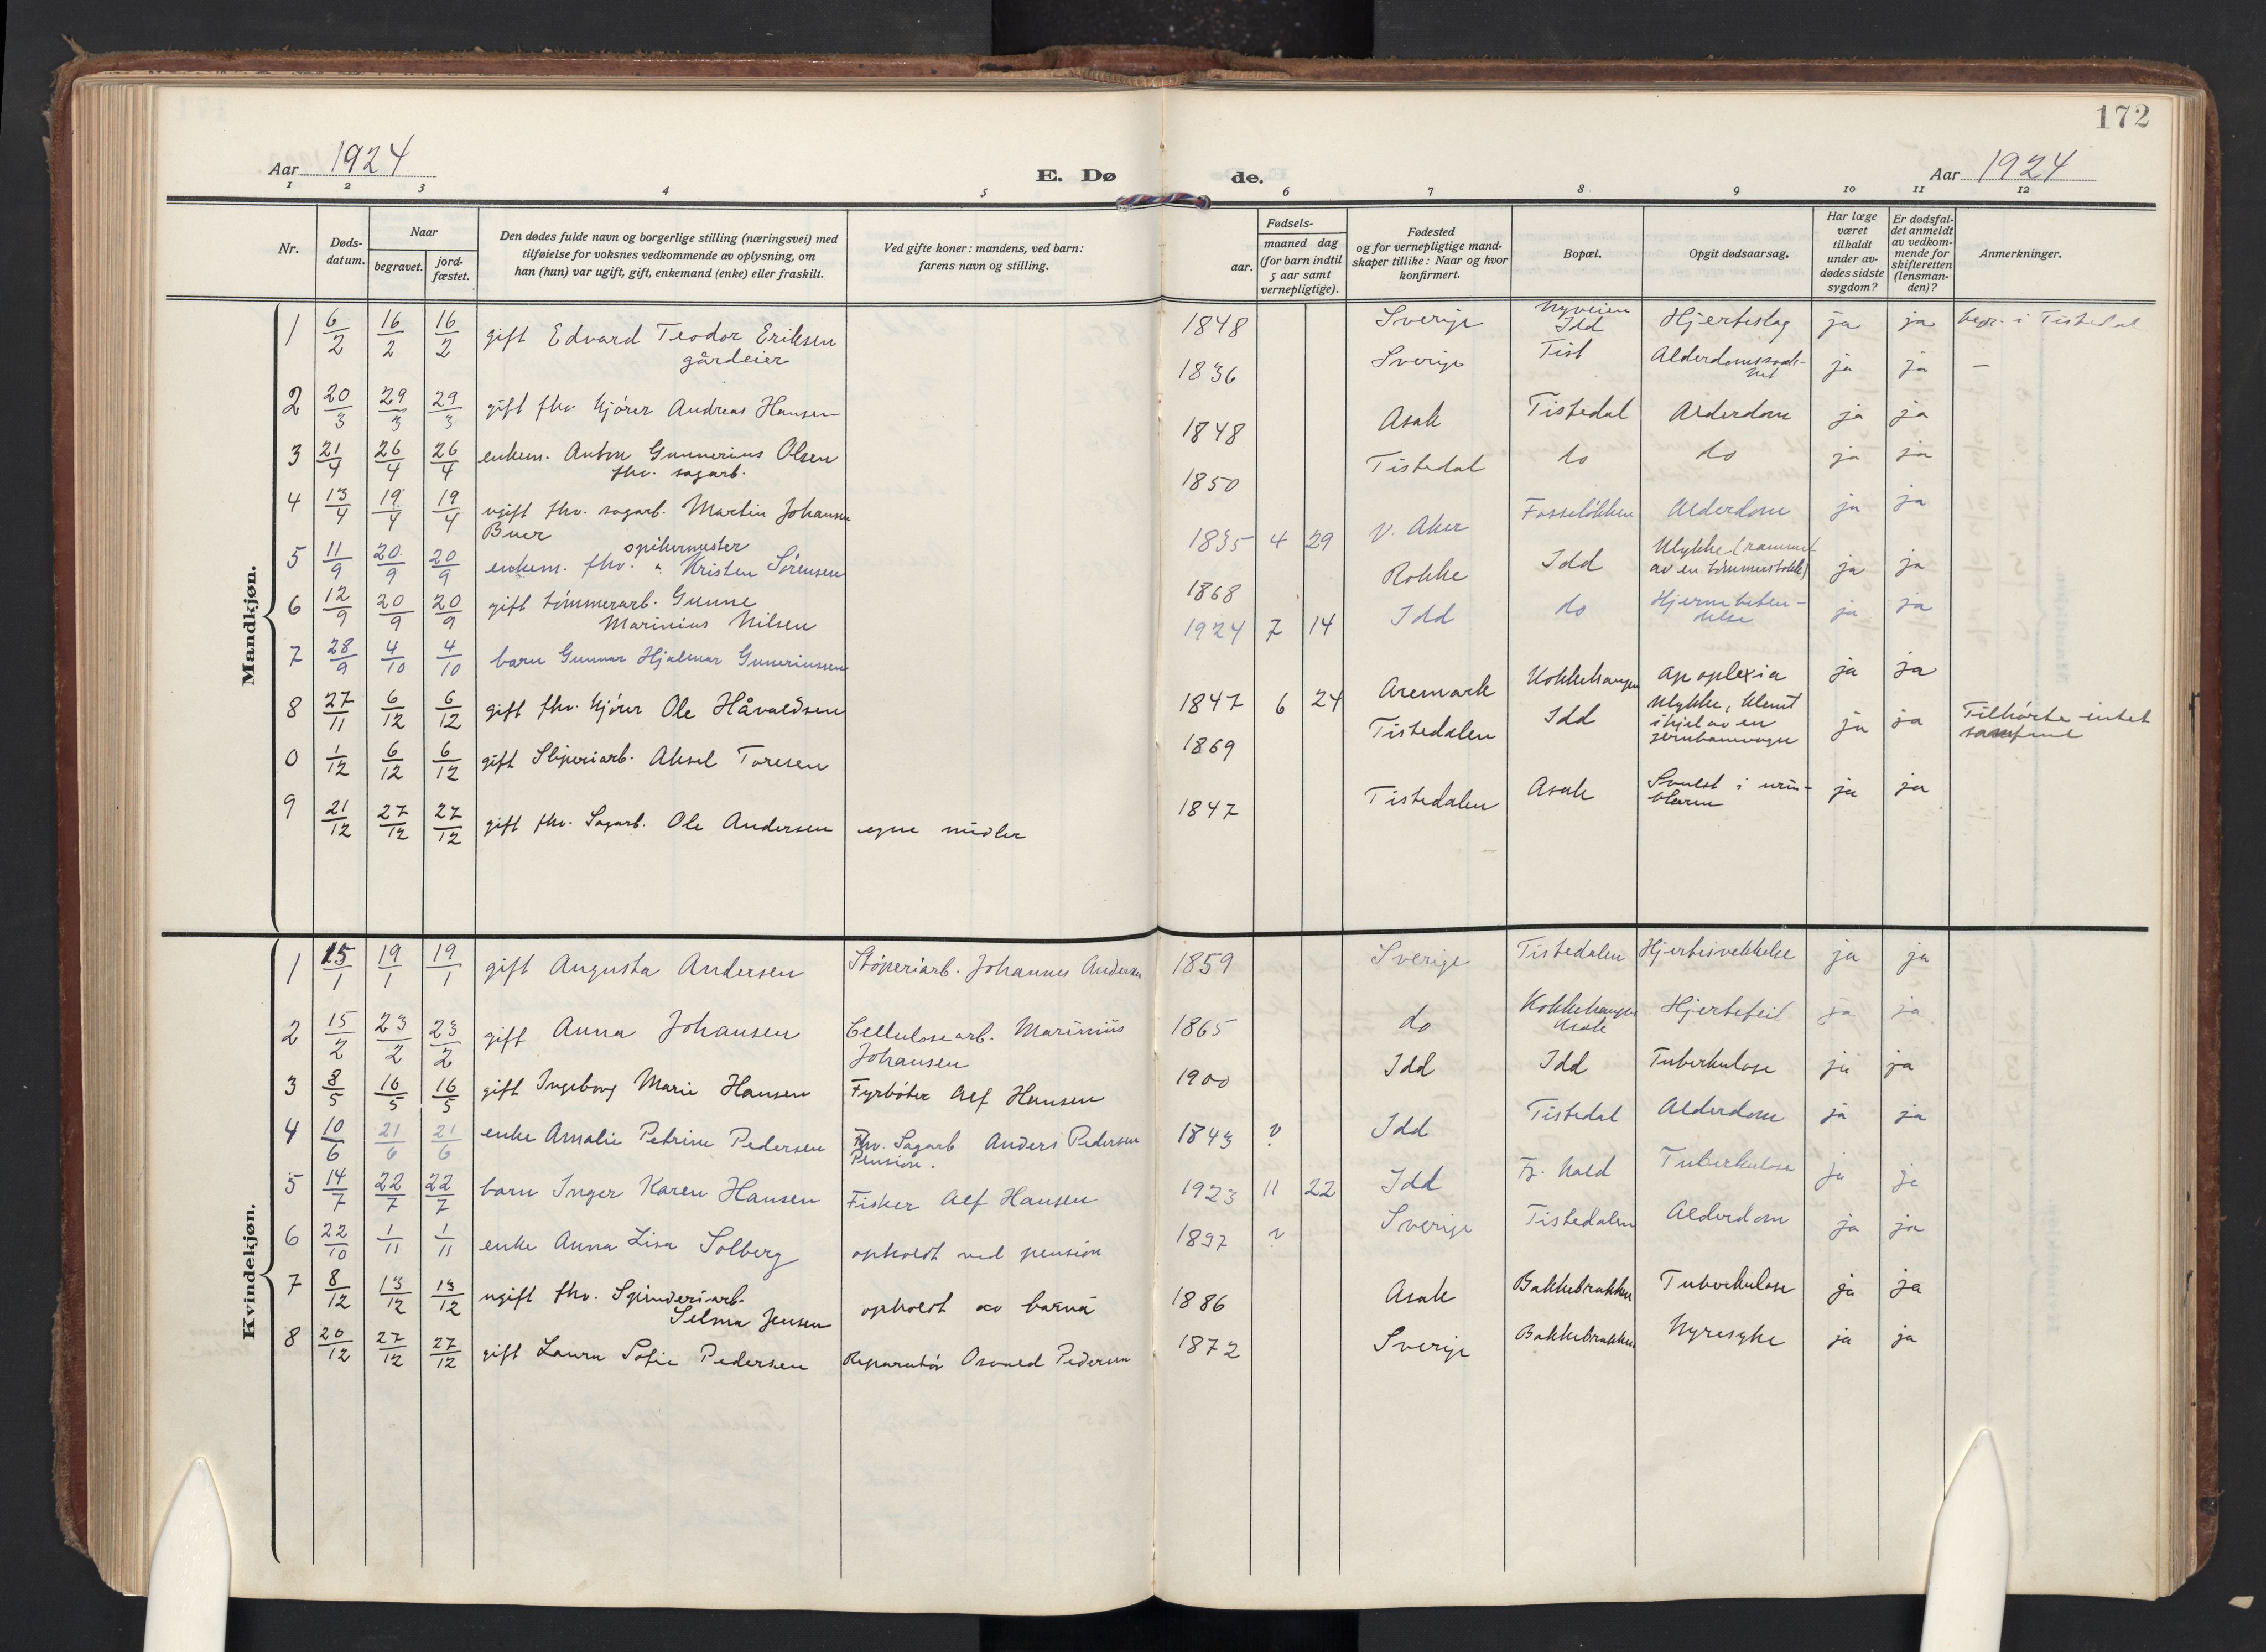 172
Aar 1924
E. Dø
de.
Aar 1924
1 2 3 4 5 6 7 8 9 10 11 12
Nr.
Døds-
datum.
Naar
begravet.
jord-
fæstet.
Den dødes fulde navn og borgerlige stilling (næringsvei) med
tilføielse for voksnes vedkommende av oplysning, om
han (hun) var ugift, gift, enkemand (enke) eller fraskilt.
Ved gifte koner: mandens, ved barn:
farens navn og stilling.
Fødsels-
aar.
maaned dag
(for barn indtil
5 aar samt
vernepligtige).
Fødested
og for vernepligtige mand-
skaper tillike: Naar og hvor
konfirmert.
Bopæl.
Opgit dødsaarsag.
Har læge
været
tilkaldt
under av-
dødes sidste
sygdom?
Er dødsfal-
det anmeldt
av vedkom-
mende for
skifteretten
(lensman-
den)?
Anmerkninger.
Mandkjøn.
1 6/2 16/2 16/2 gift Edvard Teodor Eriksen
gårdeier
1848 Sverige Nyveien
Idd Hjerteslag ja ja begr. i Tistedal
2 20/3 29/3 29/3 gift fhv. kjører Andreas Hansen
1836 Sverige Tist Alderdomssvak-
het ja ja —
3 21/4 26/4 26/4 enkem. Anton Gunnerius Olsen
fhv. sagarb.
1848 Asak Tistedal Alderdom ja ja
4 13/4 19/4 19/4 ugift fhv. sagarb. Martin Johansen
Buer
1850 Tistedal do do ja ja
5 11/9 20/9 20/9 enkem. fhv. spikermester Kristen Sørensen
1835 4 29 V. Aker Fosseløkken Alderdom ja ja
6 12/9 20/9 20/9 gift tømmerarb. Gunne
Marinius Nilsen
1868 Rokke Idd Ulykke (rammet
av en tømmerstokk) ja ja
7 28/9 4/10 4/10 barn Gunnar Hjalmar Gunneriussen
1924 7 14 Idd do Hjernebeten-
delse ja ja
8 27/11 6/12 6/12 gift fhv. kjører Ole Håvaldsen
1847 6 24 Aremark Kokkehaugen apoplexia ja ja
0 1/12 6/12 6/12 gift Sliperiarb. Aksel Toresen
1869 Tistedalen Idd Ulykke, klemt
ihjel av en
jernbanevogn ja ja Tilhørte intet
samfund
9 21/12 27/12 27/12 gift fhv. Sagarb. Ole Andersen egne midler
1847 Tistedalen Asak Svulst i urin-
blæren ja ja
Kvindekjøn.
1 15/1 19/1 19/1 gift Augusta Andersen Støperiarb. Johannes Andersen 1859 Sverige Tistedalen Hjertesvekkelse ja ja
2 15/2 23/2 23/2 gift Anna Johansen Cellulosearb. Marinius
Johansen
1865 do Kokkehaugen
Asak Hjertefeil ja ja
3 8/5 16/5 16/5 gift Ingeborg Marie Hansen Fyrbøter Alf Hansen 1900 Idd Idd Tuberkulose ja ja
4 10/6 21/6 21/6 enke Amalie Petrine Pedersen Fhv. Sagarb Anders Pedersen
Pension.
1843 ? Idd Tistedal Alderdom ja ja
5 14/7 22/7 22/7 barn Inger Karen Hansen Fisker Alf Hansen 1923 11 22 Idd Fr. hald Tuberkulose ja ja
6 22/10 1/11 1/11 enke Anna Lisa Solberg opholdt ved pension 1837 ? Sverige Tistedalen Alderdom ja ja
7 8/12 13/12 13/12 ugift fhv. Spinderiarb.
Selma Jensen opholdt av barna 1886 Asak Bakkebrakken Tuberkulose ja ja
8 20/12 27/12 27/12 gift Laura Sofie Pedersen Reparatør Osvald Pedersen 1872 Sverige Bakkebrakken Nyresyke ja ja